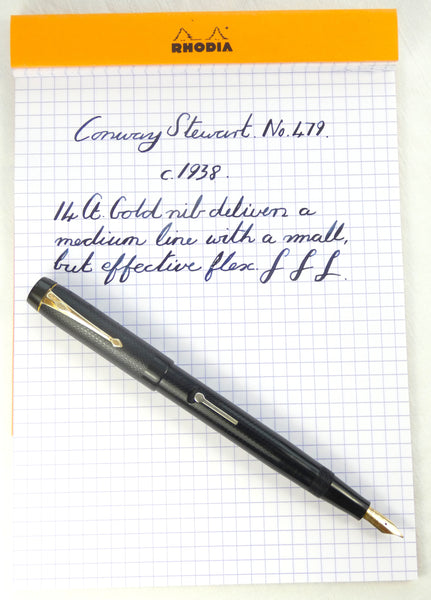 RHODIA
Conway Stewart. No. 479.
c. 1938.
14 Ct. Gold nib delivers a
medium line with a small,
but effective flex. f f f.